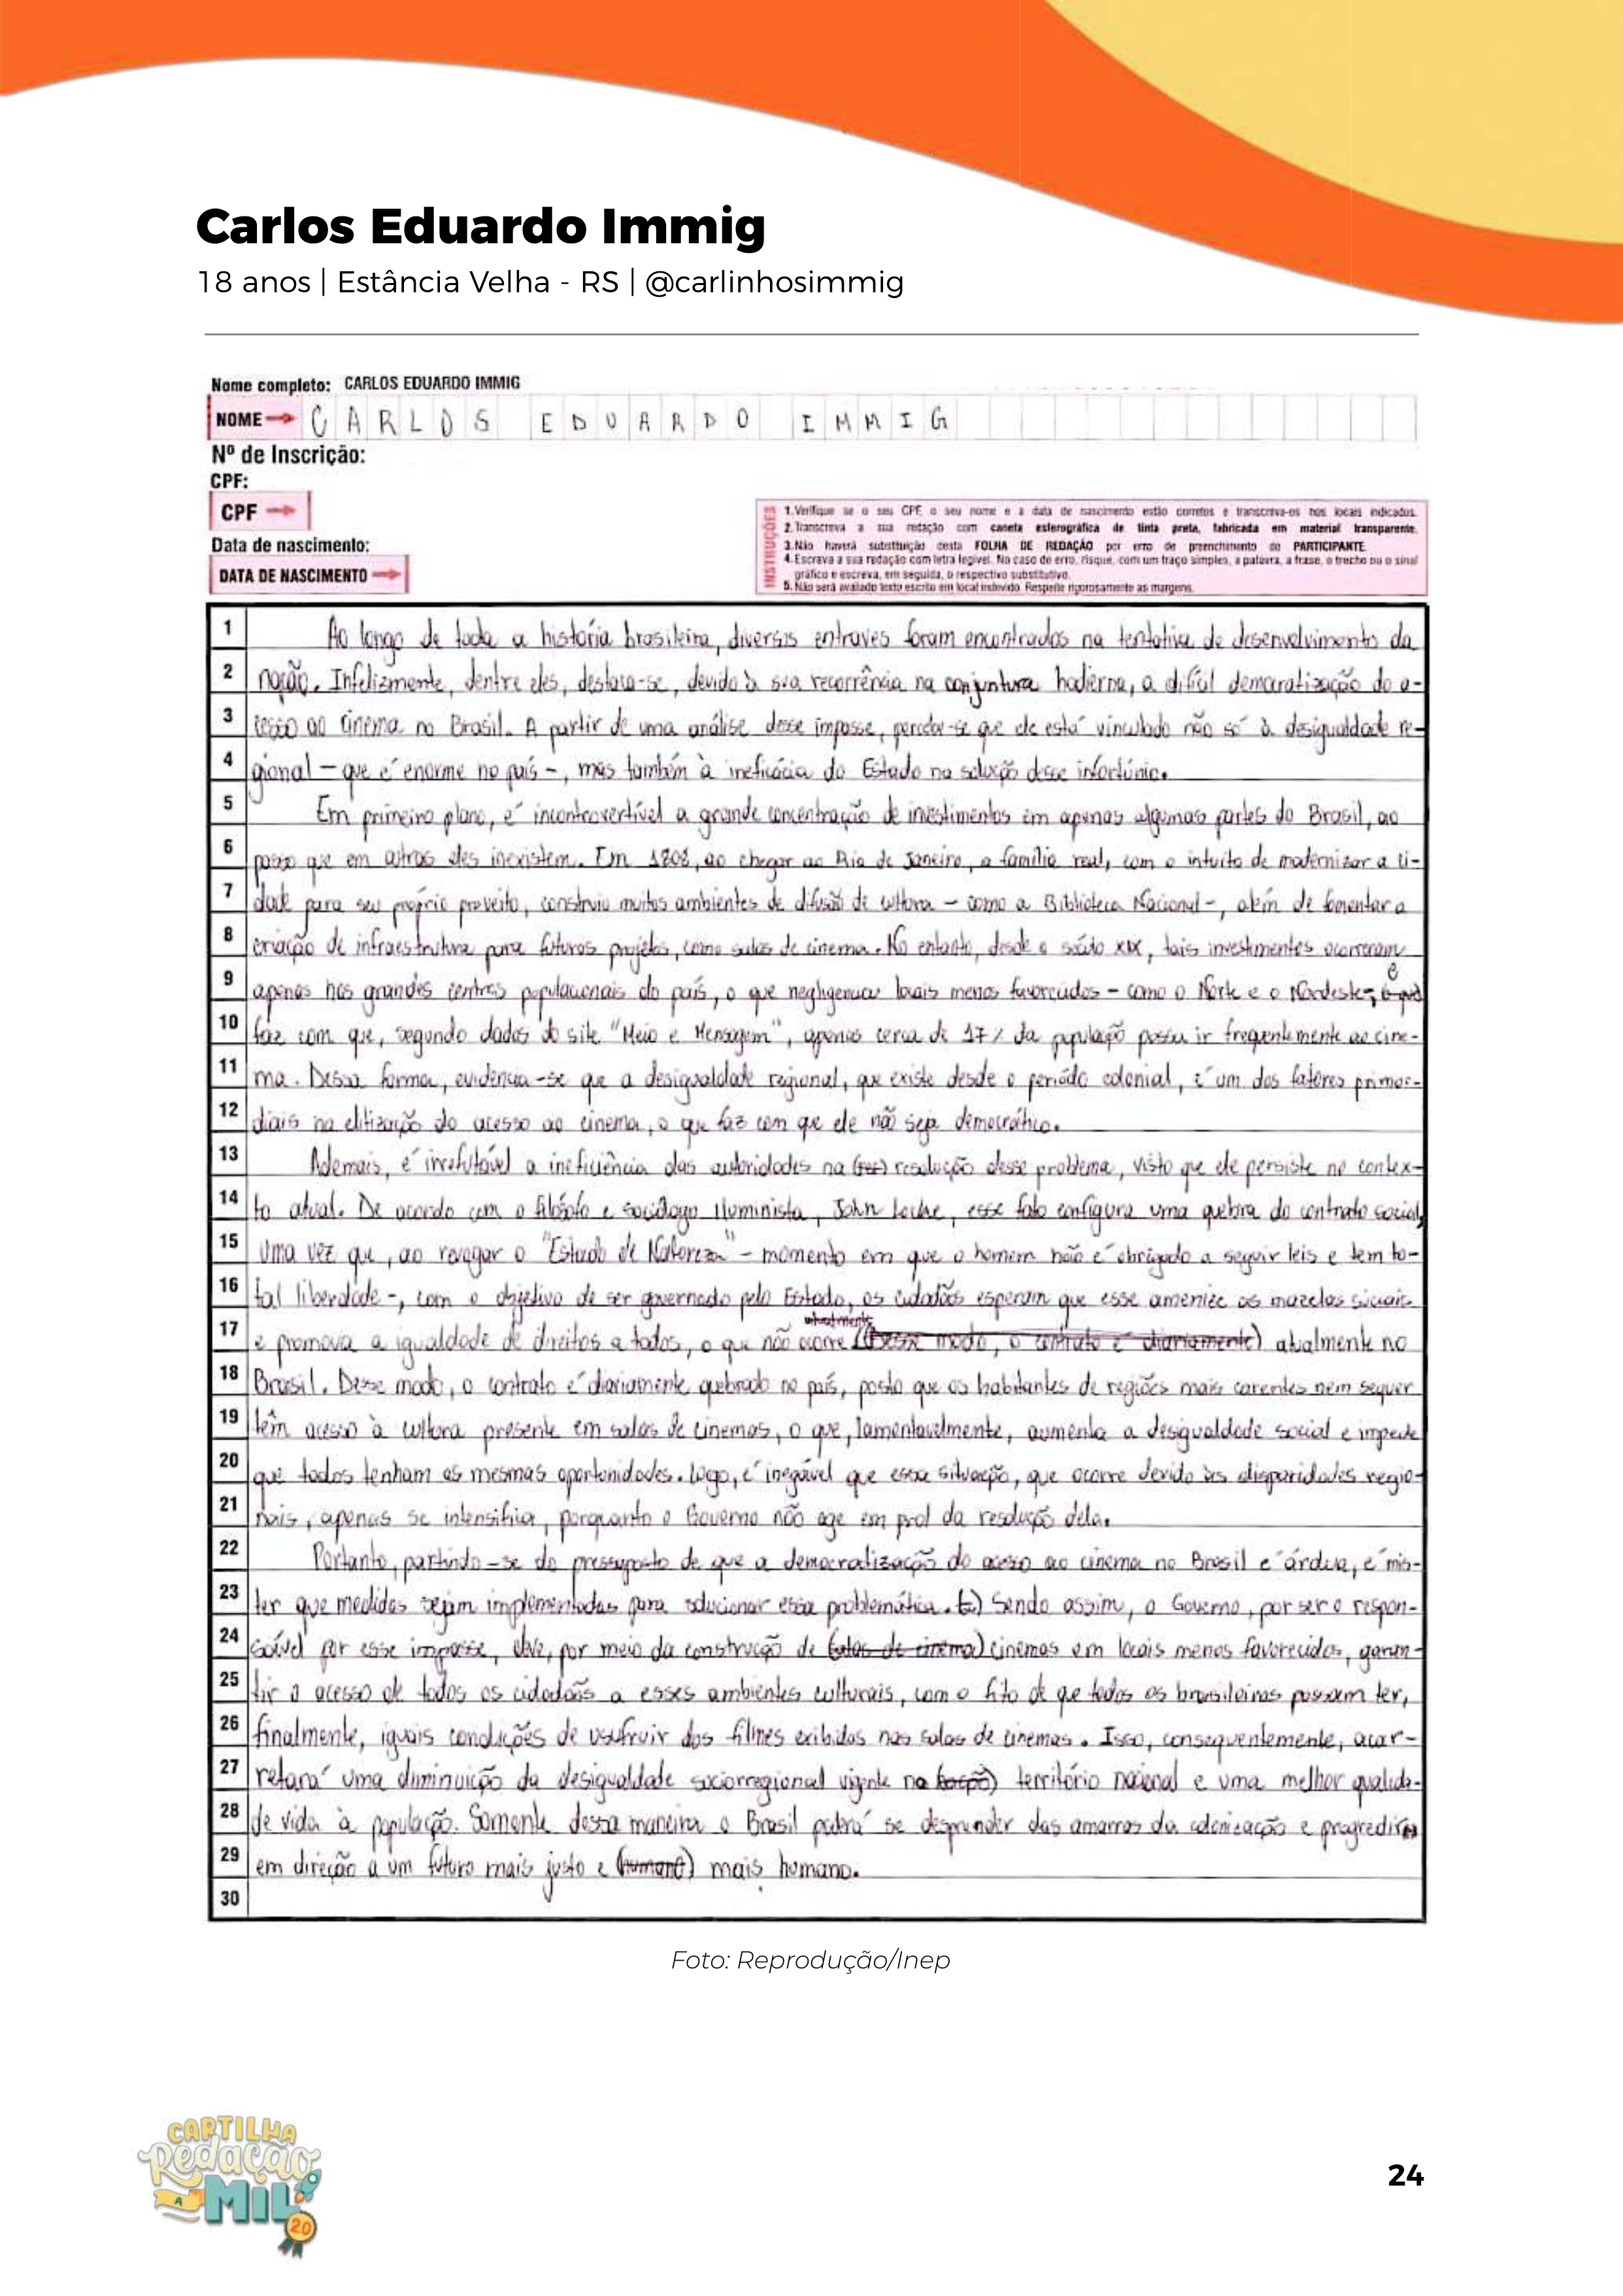 Carlos Eduardo Immig
18 anos | Estância Velha - RS | @carlinhosimmig
Nome completo: CARLOS EDUARDO IMMIG
NOME CARLOS EDUARDO IMMIG
Nº de Inscrição:
CPF:
CPF
Data de nascimento:
DATA DE NASCIMENTO
INSTRUÇÕES
1. Verifique se o seu CPF, o seu nome e a data de nascimento estão corretos e transcreva-os nos locais indicados.
2. Transcreva a sua redação com caneta esferográfica de tinta preta, fabricada em material transparente.
3. Não haverá substituição desta FOLHA DE REDAÇÃO por erro de preenchimento do PARTICIPANTE.
4. Escreva a sua redação com letra legível. No caso de erro, risque, com um traço simples, a palavra, a frase, o trecho ou o sinal
gráfico e escreva, em seguida, o respectivo substitutivo.
5. Não será avaliado texto escrito em local indevido. Respeite rigorosamente as margens.
1 Ao longo de toda a história brasileira, diversos entraves foram encontrados na tentativa de desenvolvimento da
2 nação. Infelizmente, dentre eles, destaca-se, devido à sua recorrência na conjuntura hodierna, a difícil democratização do a-
3 cesso ao cinema no Brasil. A partir de uma análise desse impasse, percebe-se que ele está vinculado não só à desigualdade re-
4 gional – que é enorme no país –, mas também à ineficácia do Estado na solução desse infortúnio.
5 Em primeiro plano, é incontrovertível a grande concentração de investimentos em apenas algumas partes do Brasil, ao
6 passo que em outras eles inexistem. Em 1808, ao chegar ao Rio de Janeiro, a família real, com o intuito de modernizar a ci-
7 dade para seu próprio proveito, construiu muitos ambientes de difusão de cultura – como a Biblioteca Nacional –, além de fomentar a
8 criação de infraestrutura para futuros projetos, como salas de cinema. No entanto, desde o século XIX, tais investimentos ocorreram
9 apenas nos grandes centros populacionais do país, o que negligencia locais menos favorecidos – como o Norte e o Nordeste, o que e
10 faz com que, segundo dados do site "Meio e Mensagem", apenas cerca de 17% da população possa ir frequentemente ao cine-
11 ma. Dessa forma, evidencia-se que a desigualdade regional, que existe desde o período colonial, é um dos fatores primor-
12 diais na elitização do acesso ao cinema, o que faz com que ele não seja democrático.
13 Ademais, é irrefutável a ineficiência das autoridades na resolução desse problema, visto que ele persiste no contex-
14 to atual. De acordo com o filósofo e sociólogo iluminista, John Locke, esse fato configura uma quebra do contrato social,
15 uma vez que, ao revogar o "Estado de Natureza" – momento em que o homem não é obrigado a seguir leis e tem to-
16 tal liberdade –, com o objetivo de ser governado pelo Estado, os cidadãos esperam que esse amenize as mazelas sociais
17 e promova a igualdade de direitos a todos, o que não ocorre (Desse modo, o contrato é diariamente) atualmente no
18 Brasil. Desse modo, o contrato é diariamente quebrado no país, posto que os habitantes de regiões mais carentes nem sequer
19 têm acesso à cultura presente em salas de cinemas, o que, lamentavelmente, aumenta a desigualdade social e impede
20 que todos tenham as mesmas oportunidades. Logo, é inegável que essa situação, que ocorre devido às disparidades regio-
21 nais, apenas se intensifica, porquanto o Governo não age em prol da resolução dela.
22 Portanto, partindo-se do pressuposto de que a democratização do acesso ao cinema no Brasil é árdua, é mis-
23 ter que medidas sejam implementadas para solucionar essa problemática. Sendo assim, o Governo, por ser o respon-
24 sável por esse impasse, deve, por meio da construção de (salas de cinema) cinemas em locais menos favorecidos, garan-
25 tir o acesso de todos os cidadãos a esses ambientes culturais, com o fito de que todos os brasileiros possam ter,
26 finalmente, iguais condições de usufruir dos filmes exibidos nas salas de cinemas. Isso, consequentemente, acar-
27 retará uma diminuição da desigualdade sociorregional vigente no território nacional e uma melhor qualida-
28 de vida à população. Somente dessa maneira o Brasil poderá se desprender das amarras da colonização e progredir
29 em direção a um futuro mais justo e (humano) mais humano.
30
Foto: Reprodução/Inep
CARTILHA
Redação
A MIL
20
24